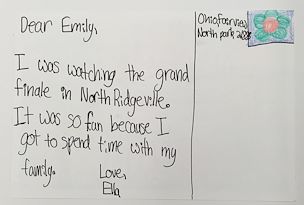 Dear Emily,
I was watching the grand
finale in North Ridgeville.
It was so fan because I
got to spend time with my
family.
Love,
Ella
Ohio, fairview
North park